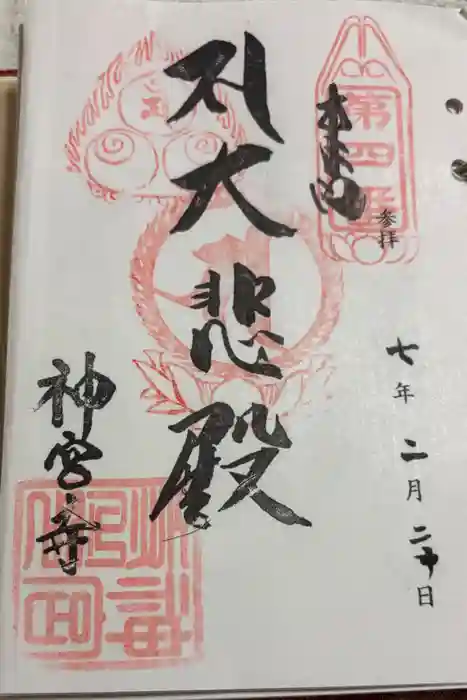 奉
第四番
参拝
七年二月二十日
大悲殿
神宮寺